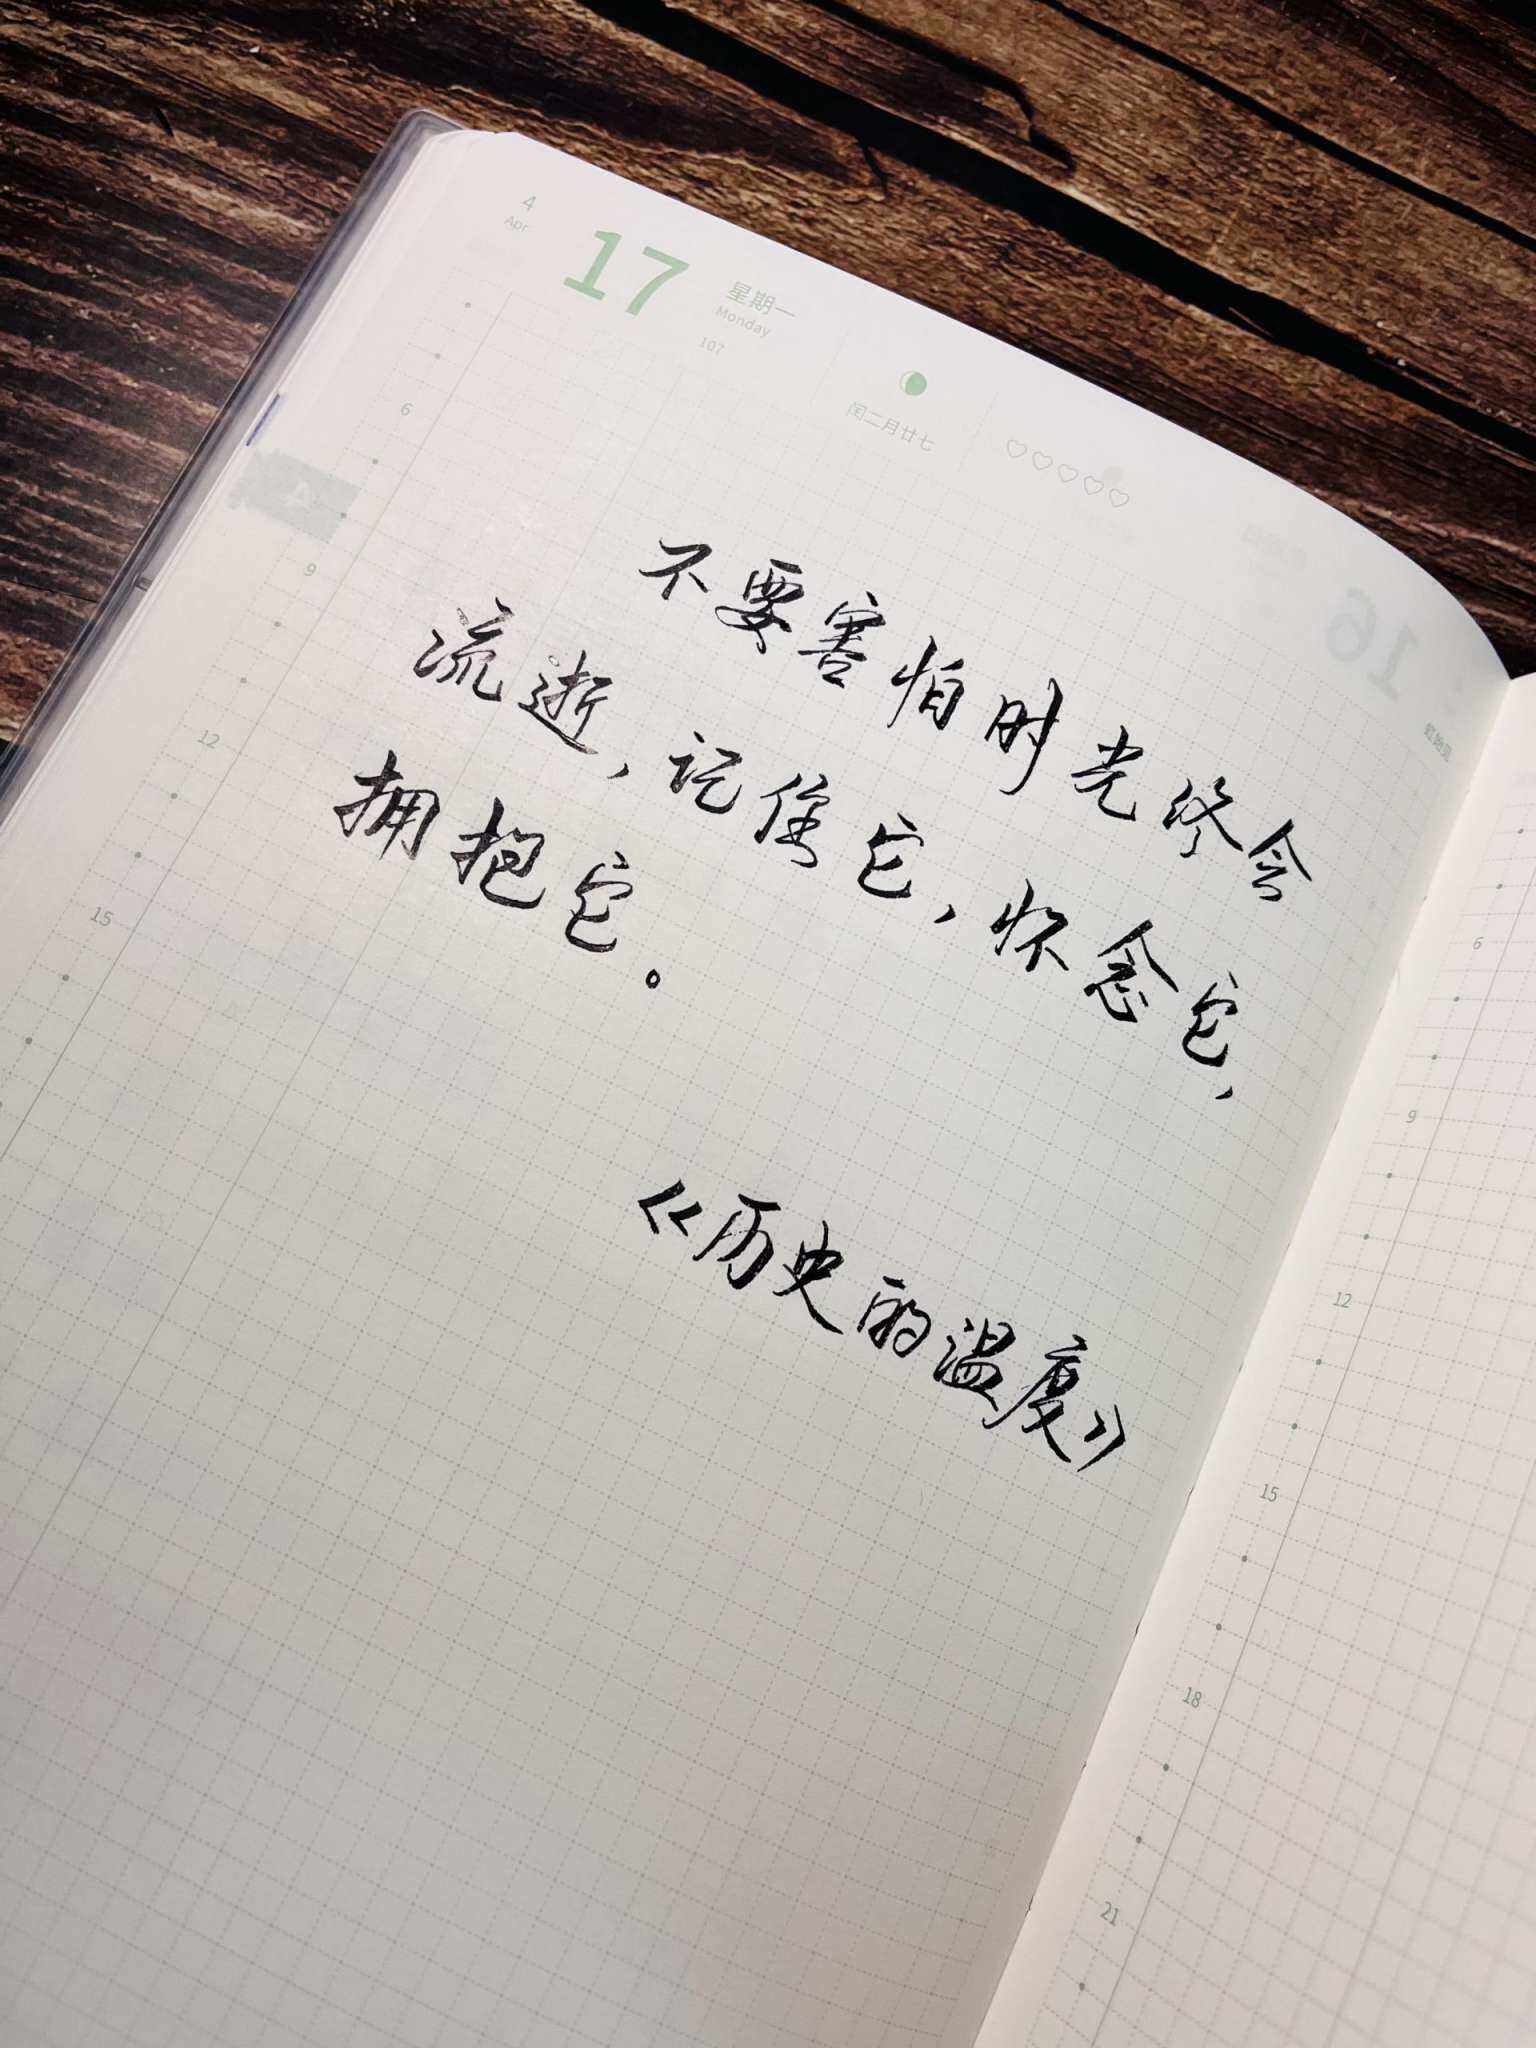 4
Apr
17
星期一
Monday
107
闰二月廿七
不要害怕时光终会
流逝,记住它,怀念它,
拥抱它。
《历史的温度》
6
9
12
15
6
9
12
15
18
21
16